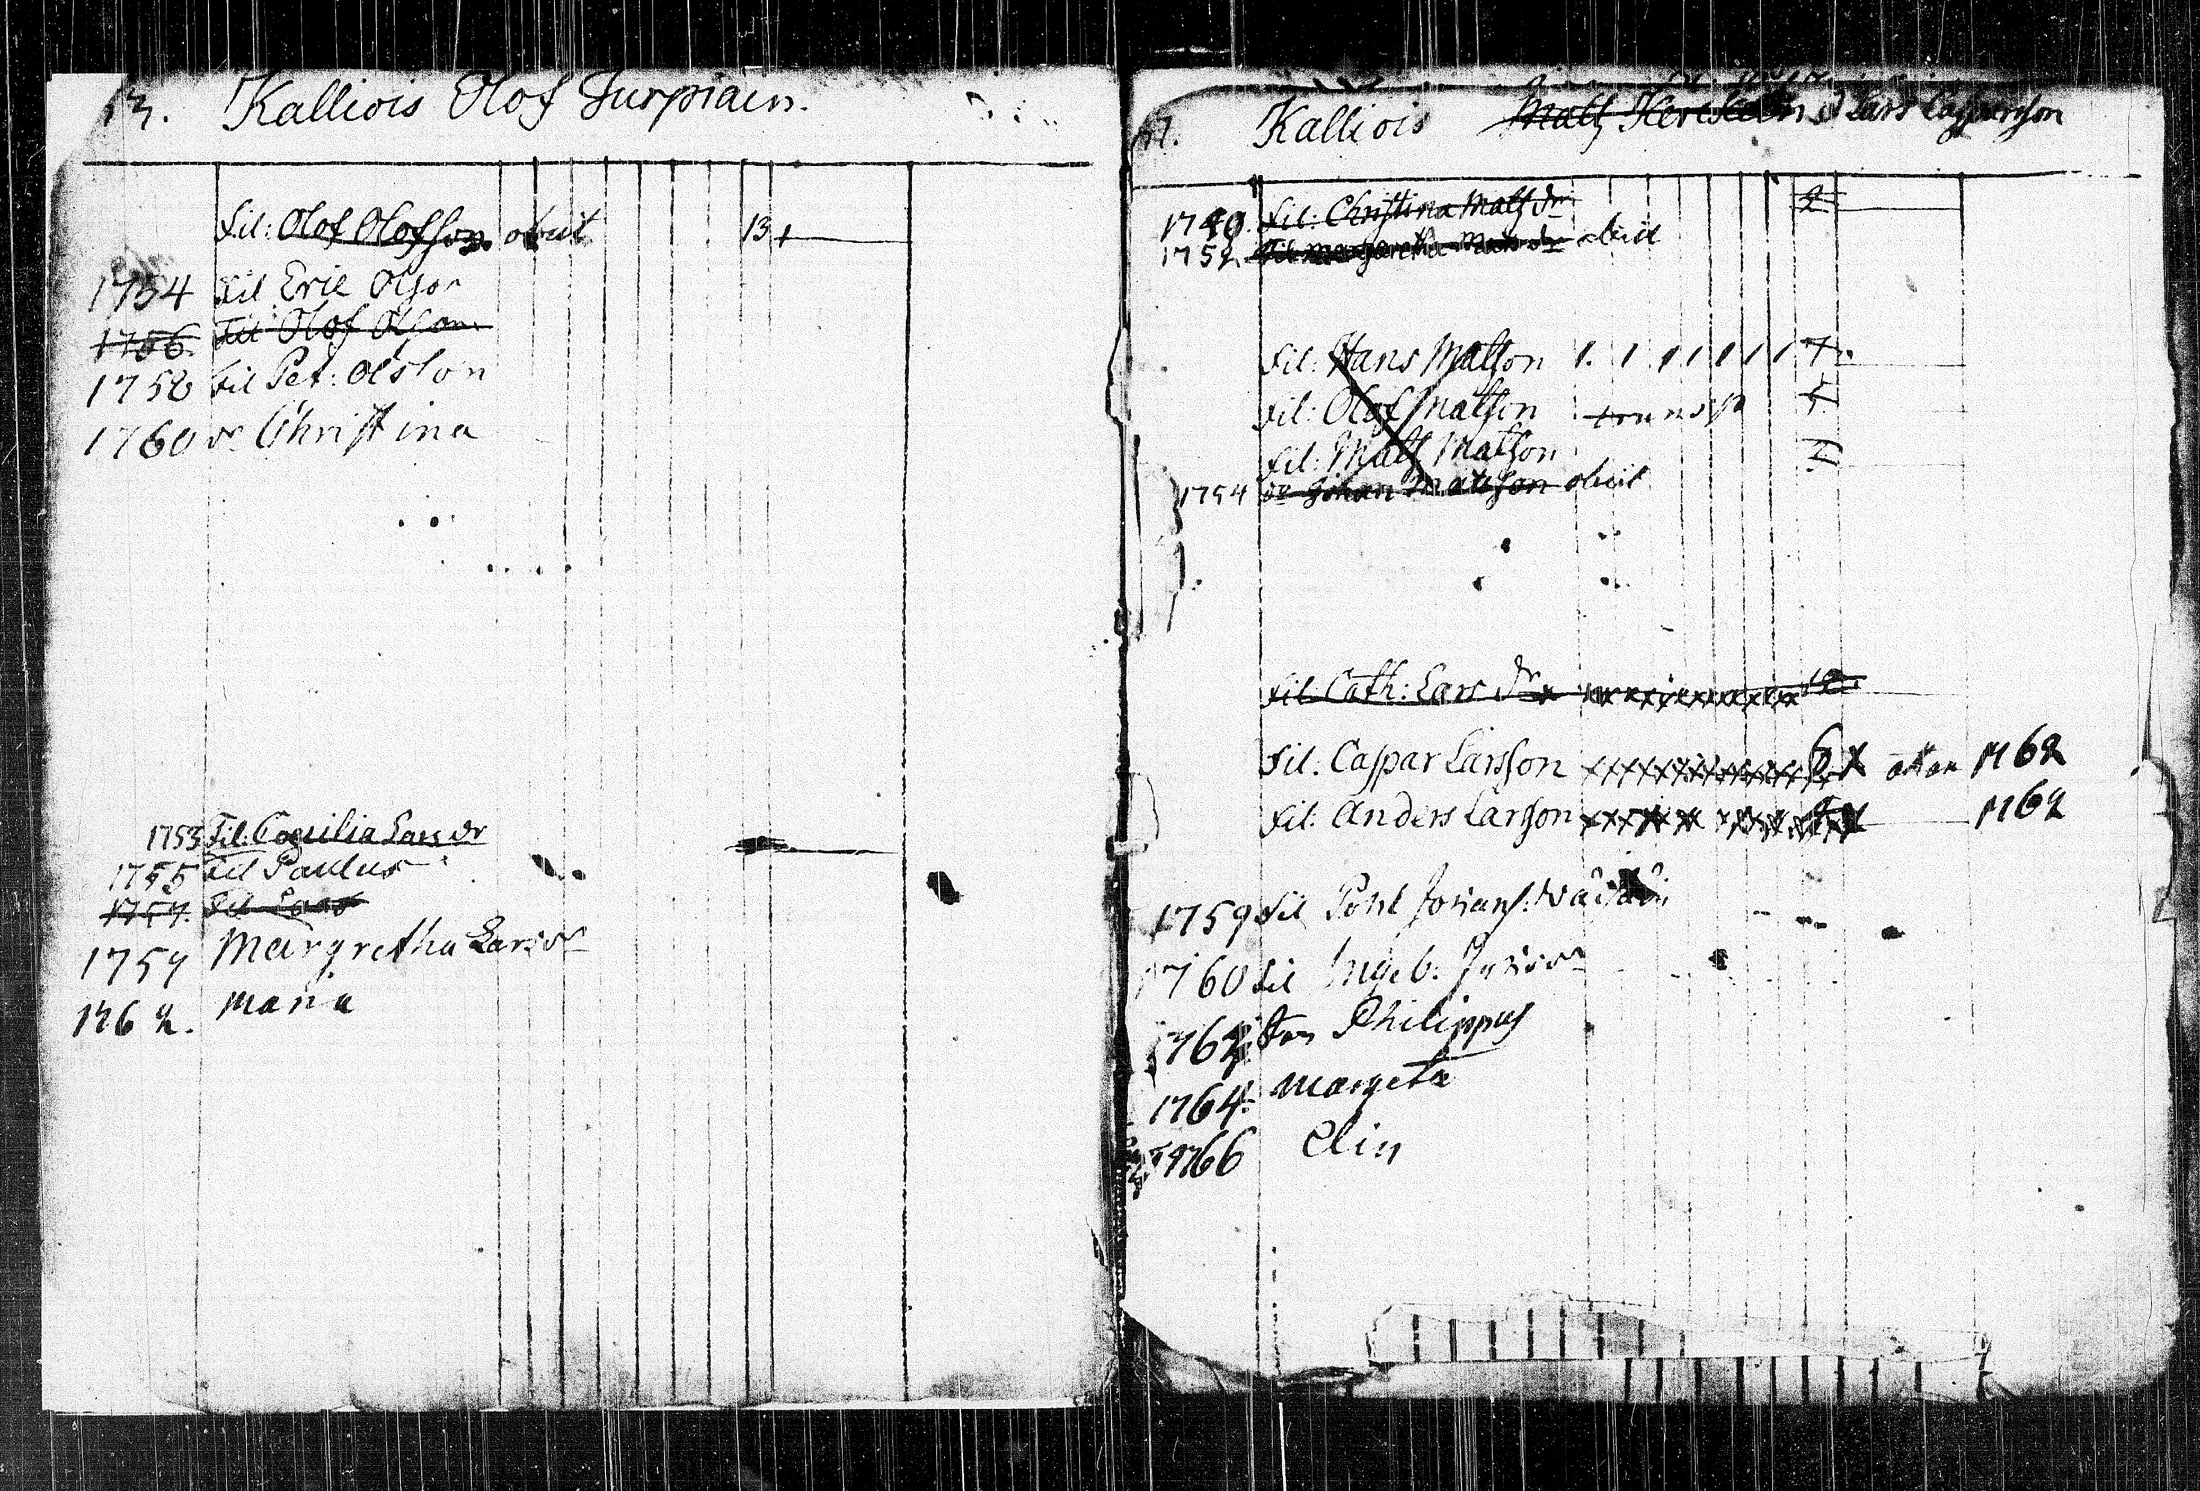 13. Kalliois Olof Turpiain.
fil: Olof Olofsson obiit 13
1754 fil Eric Olsson
1756 fil Olof Olsson
1758 fil Pet: Olsson
1760 dr Christina
1753 fil: Cæcilia Lars dr
1755 fil Paulus
1757. fil Lars
1759 Margretha Lars dr
1762. Maria
Kalliois Matz Lars Casperson
1749. fil: Christina Mats dr 2
1752 fil: Margaretha Mats dr obiit
fil: Hans Matsson 7
fil: Olof Matsson
fil: Mats Matson
1754 Johan Matsson obiit
fil: Cath: Lars dr
fil: Caspar Larsson 6 x 1762
fil: Anders Larsson 1762
1759 fil Pohl
1760 fil Ingeb:
176 Philippus
1764 Margeta
1766 Elin